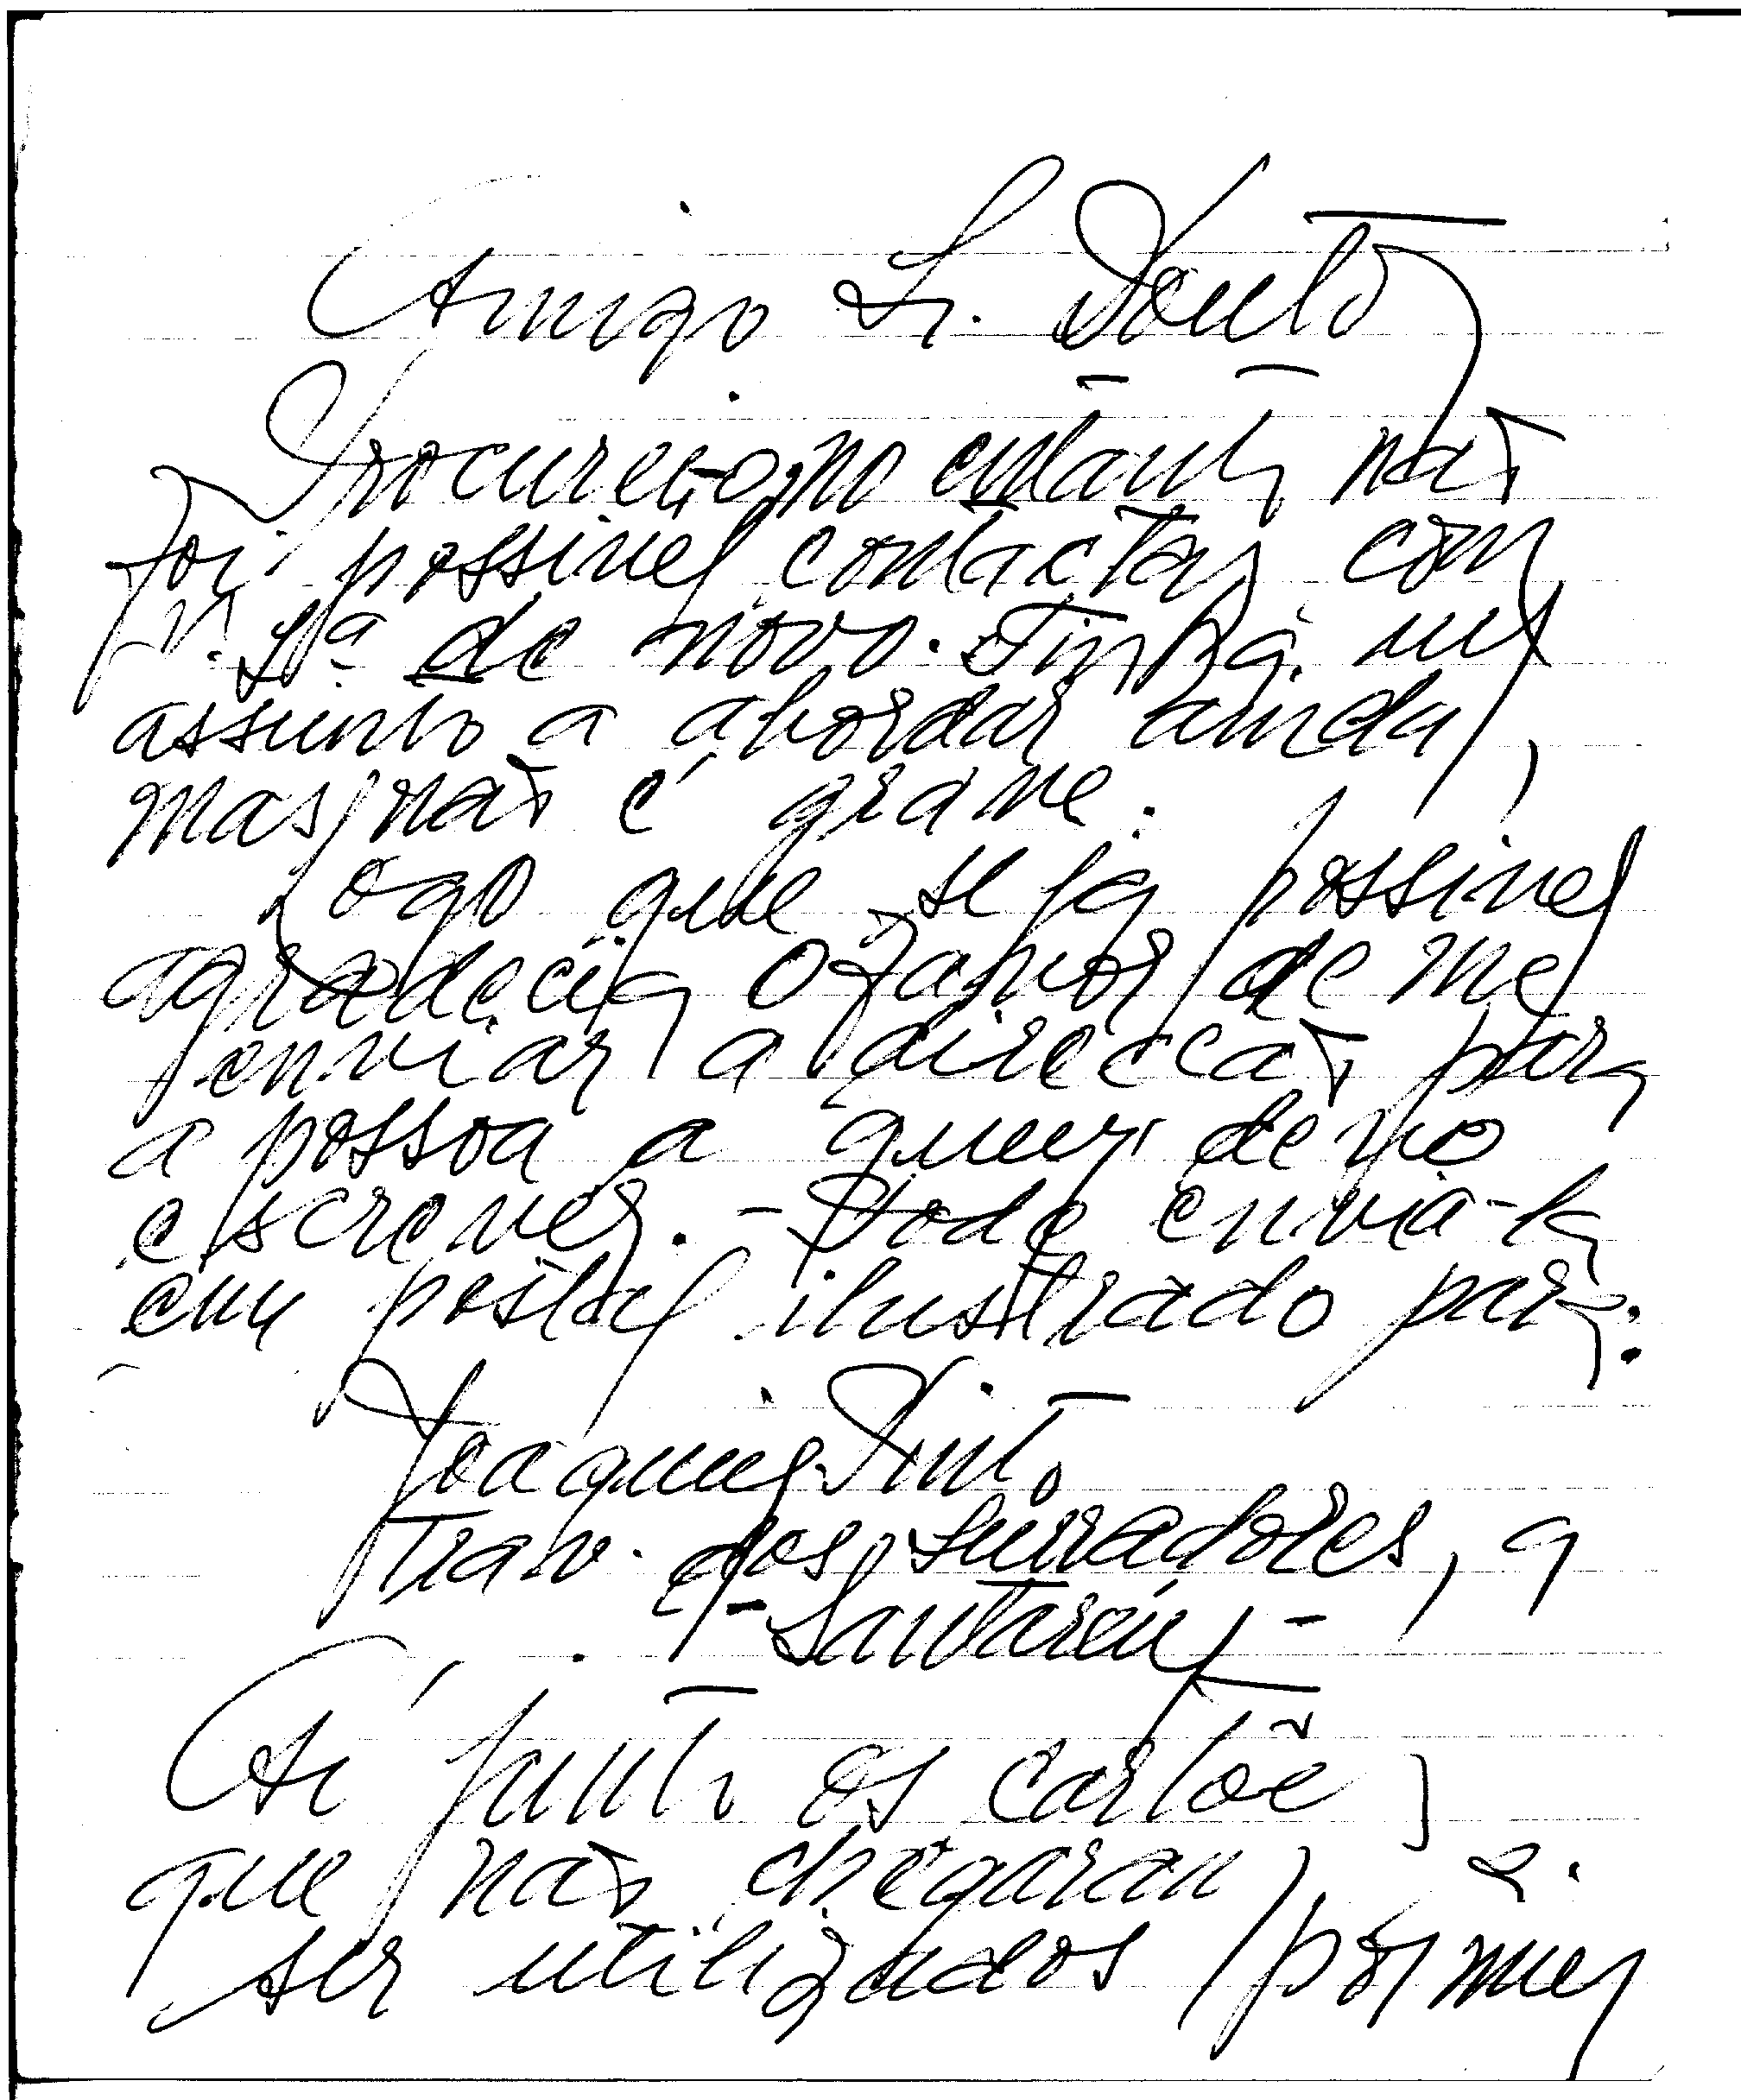 Amigo Sr. Souto
Procurei-o, no entanto não
foi possivel contactar com
V. Sª de novo. Tinha um
assunto a abordar ainda,
mas não é grave.
Logo que seja possivel
agradecia o favor de me
enviar a direccão para
a pessoa a quem devo
escrever. - Pode enviá-la
em postal ilustrado para:
Joaquim Pinto
Trav. dos Surradores, 9
- Santarém -
Aí junto os cartões
que não chegaram a
ser utilizados por mim